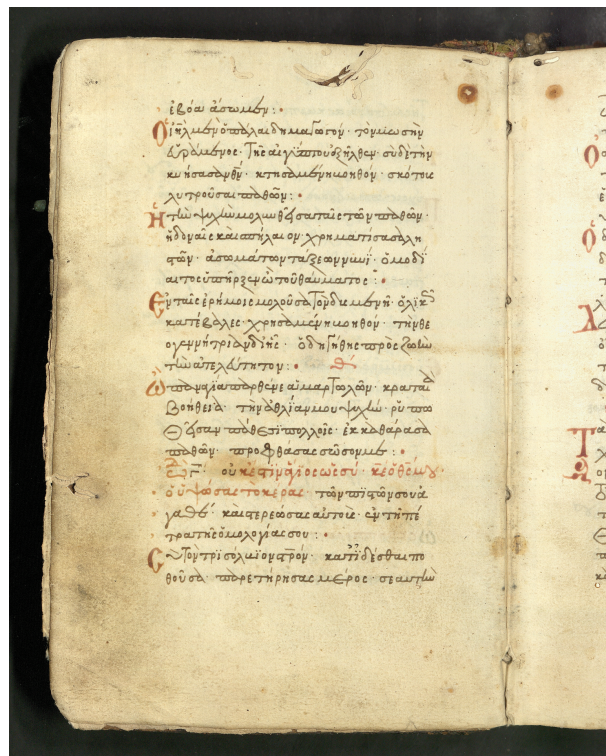 ἐβόα ἄσωμεν :
Ὁ ἰηλ μὲν ὁ πάλαι δημαγωγὸν· τὸν μωσὴν
δεξάμενος· τῆς αἰγύπτου ἐξῆλθεν· σὺ δὲ τὴν
κυήσασαν θν· κτησαμένη βοηθόν· σκότους
λυτροῦσαι παθῶν :
Ἡ τὴν ψυχὴν μολυνθεῖσα ταῖς τῶν παθῶν·
ἡδοναῖς καὶ σπήλαιον· χρηματίσασα λη
στῶν· ἀσωμάτων τάξεων νυνΐ· ὁμοδί
αιτος ὑπῆρξας ὢ τοῦ θαύματος :
Ἐν ταῖς ἐρήμοις μολοῦσα τὸν δυσμενῆ· ὁλικῶς
κατέβαλες· χρησαμένη βοηθόν· τὴν θε
ογεννήτριαν δι ἧς· ὁδηγήθης πρὸς ζωὴν
τὴν ἀτελεύτητον :
Ὦ παναγία παρθένε ἁμαρτωλῶν· κραταιὰ
βοήθεια· τὴν ἀθλίαν μου ψυχὴν· ῥυπω
θεῖσαν πάθεσι πολλοῖς· ἐκκαθάρασα
παθῶν· προφθάσασα σῶσον με :
οὐκ ἔστιν ἅγιος ὡς σύ· κε ὁ θς μου·
ὁ ὑψώσας τὸ κέρας· τῶν πιστῶν σου ἀ
γαθέ· καὶ στερεώσας αὐτοὺς· ἐν τῇ πέ
τρα τῆς ὁμολογίας σου :
Σὺ τὸν τρισόλβιον στρον· κατιδέσθαι πο
θοῦσα· παρετήρησας μέρος· σεαυτὴν